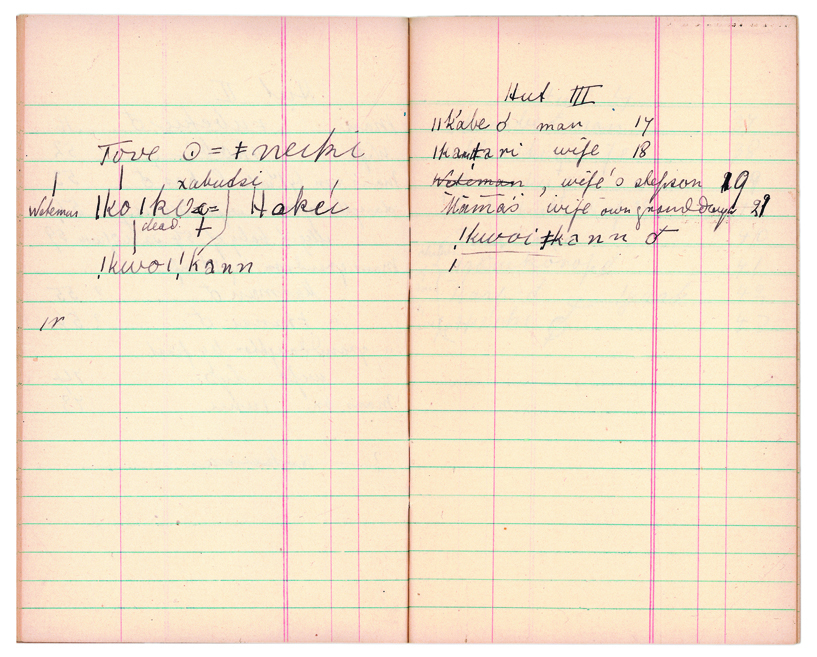 Tove ☉ = ǂneiki
xabudsi
Witeman |ko|kva= Hakéi
dead. +
!kwoi!kann
Hut III
ǁKabe ♂ man 17
wife 18
Witeman, wife's stepson 19
wife own grand 21
!kwoiǂkann ♂